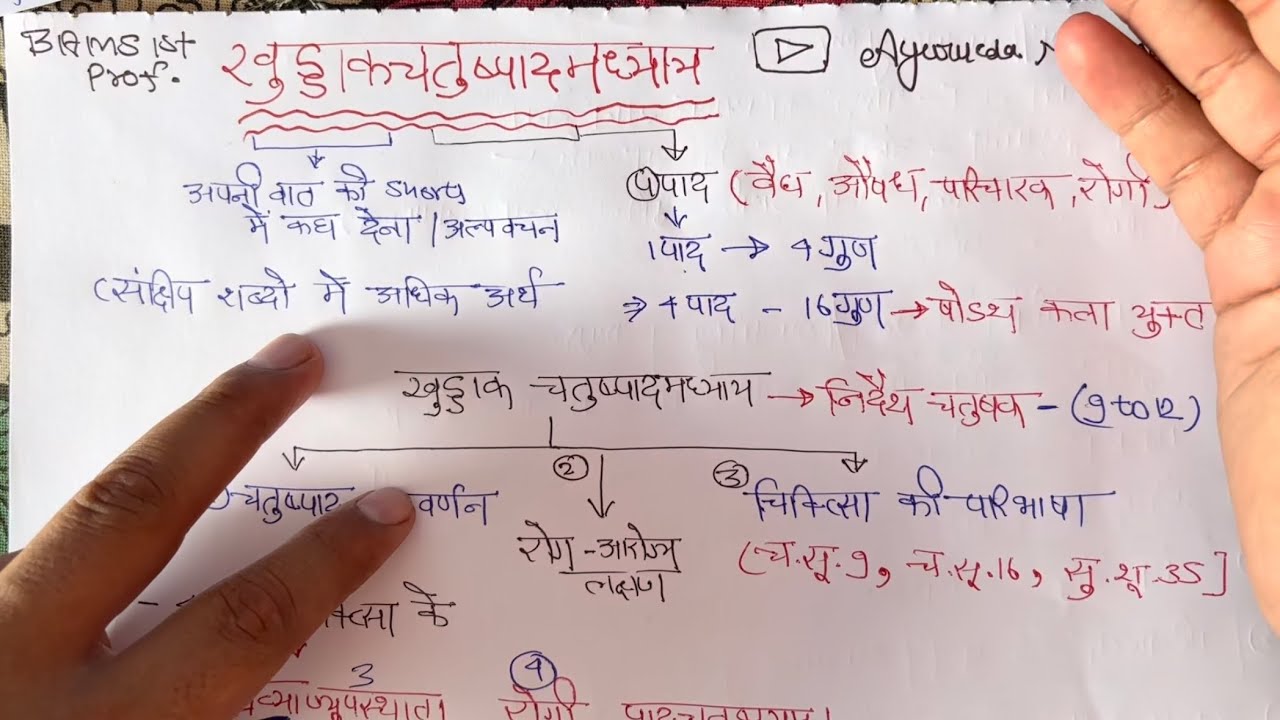 BAMS 1st
Prof.
खुड्डाकचतुष्पादमध्याय
Ayurveda
अपनी बात को short
में कह देना / अल्पवचन
(संक्षिप शब्दो में अधिक अर्थ
4 पाद (वैध, औषध, परिचारक, रोगी)
1 पाद → 4 गुण
⇒ 4 पाद - 16 गुण → षोडश कला युक्त
खुड्डाक चतुष्पादमध्याय → निर्देश चतुषक - (9 to 12)
चतुष्पाद वर्णन
② रोग - आरोग्य
लक्षण
③ चिकित्सा की परिभाषा
(च.सू.9, च.सू.16, सु.शू.35]
के
3
④
रोगी